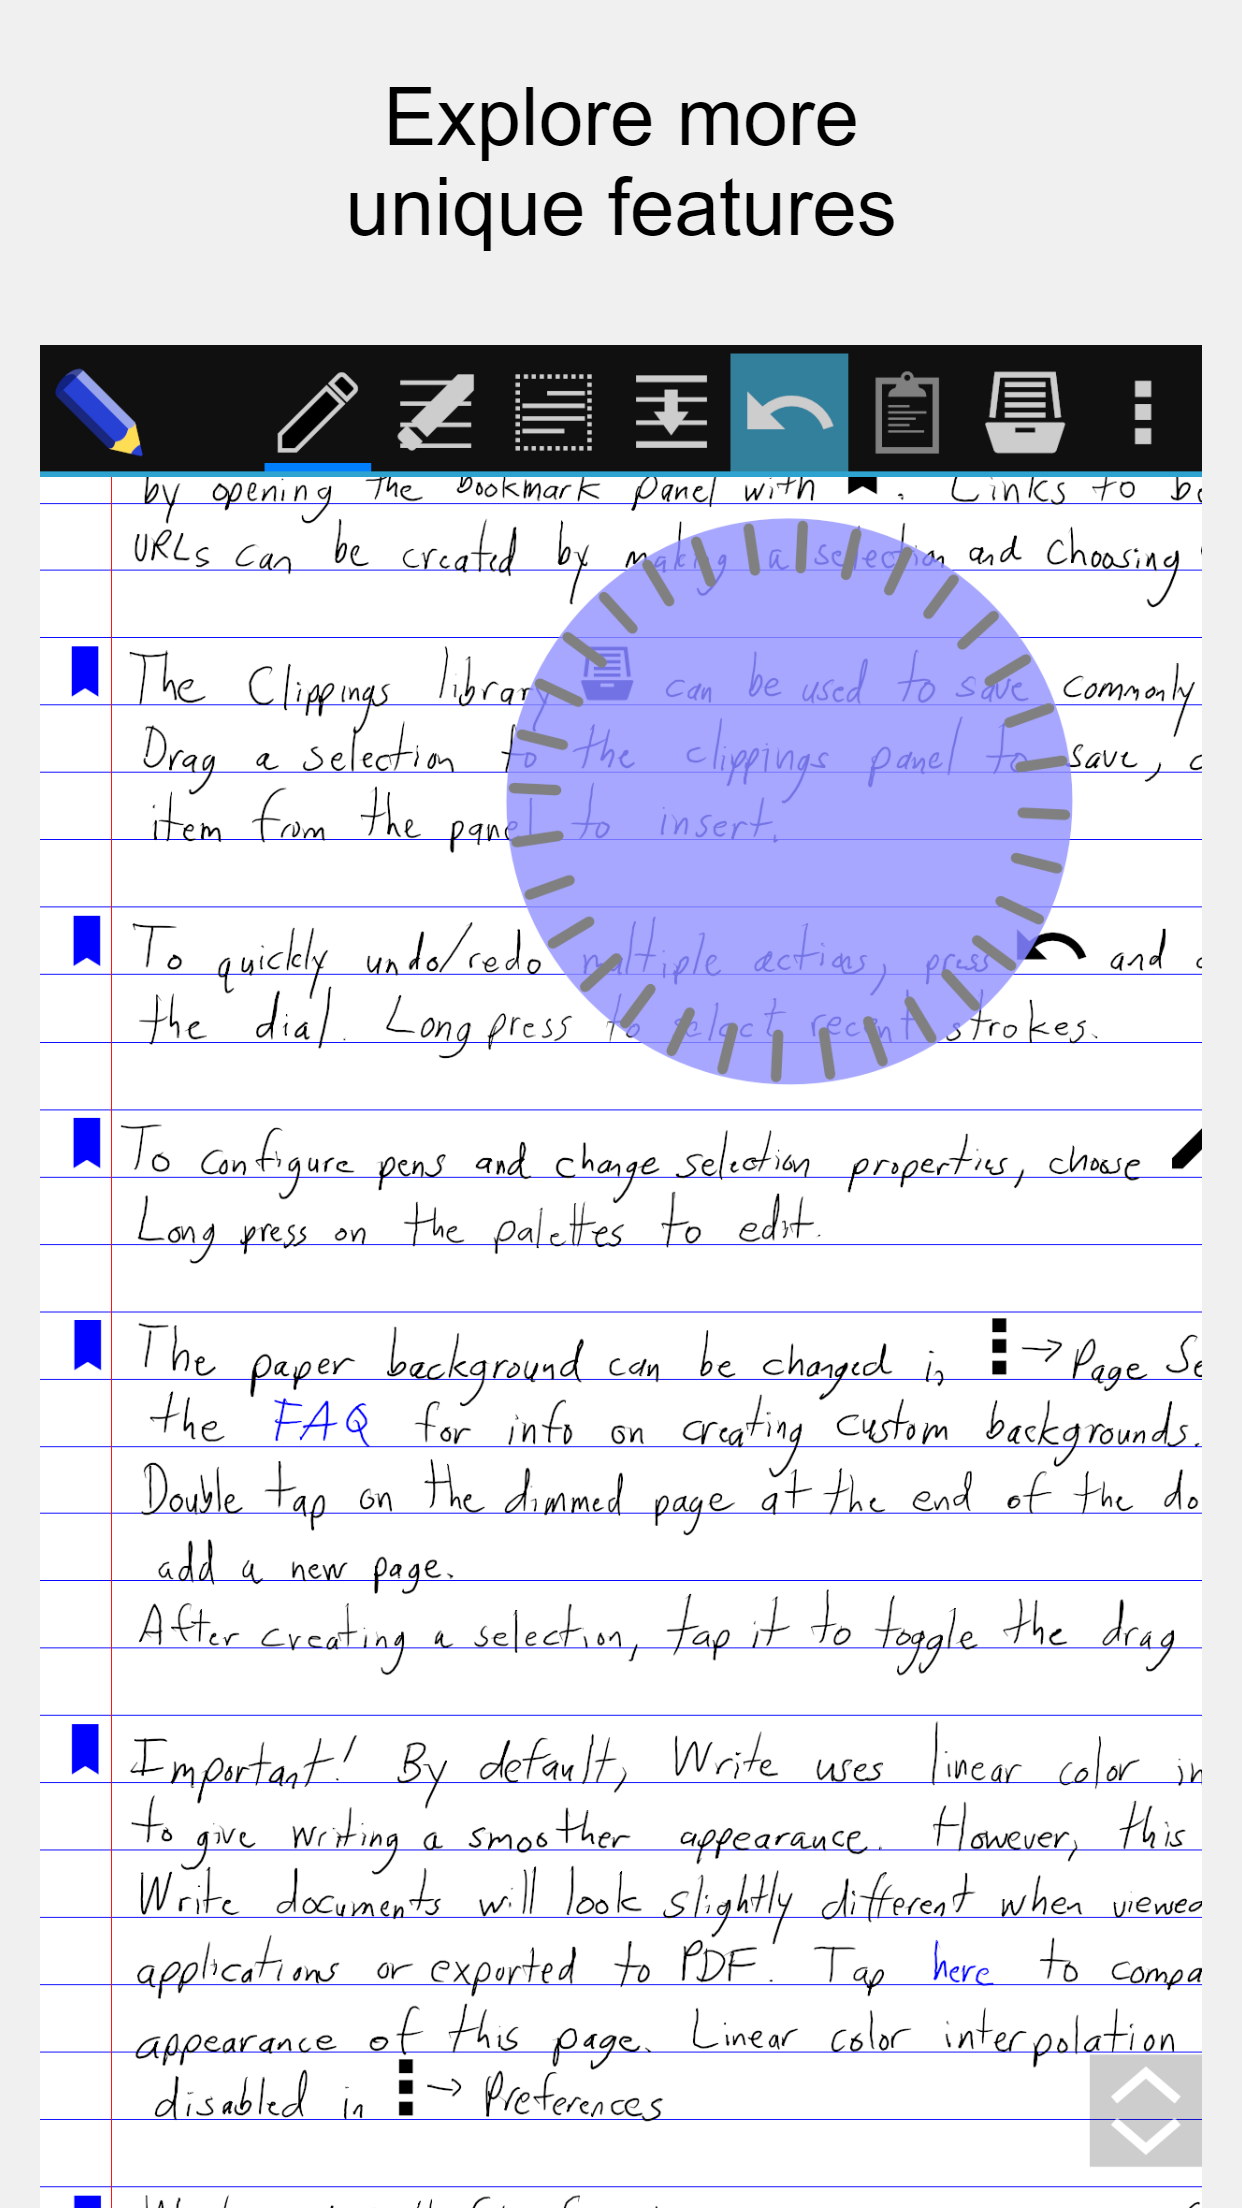 Explore more
unique features
by opening the bookmark panel with . Links to
URLs can be created by making a selection and choosing
The Clippings library can be used to save commonly
Drag a selection to the clippings panel to save,
item from the panel to insert.
To quickly undo/redo multiple actions, press and
the dial. Long press to select recent strokes.
To configure pens and change selection properties, choose
Long press on the palettes to edit.
The paper background can be changed in → Page Se
the FAQ for info on creating custom backgrounds.
Double tap on the dimmed page at the end of the do
add a new page.
After creating a selection, tap it to toggle the drag
Important! By default, Write uses linear color in
to give writing a smoother appearance. However, this
Write documents will look slightly different when viewed
applications or exported to PDF. Tap here to compa
appearance of this page. Linear color interpolation
disabled in → Preferences